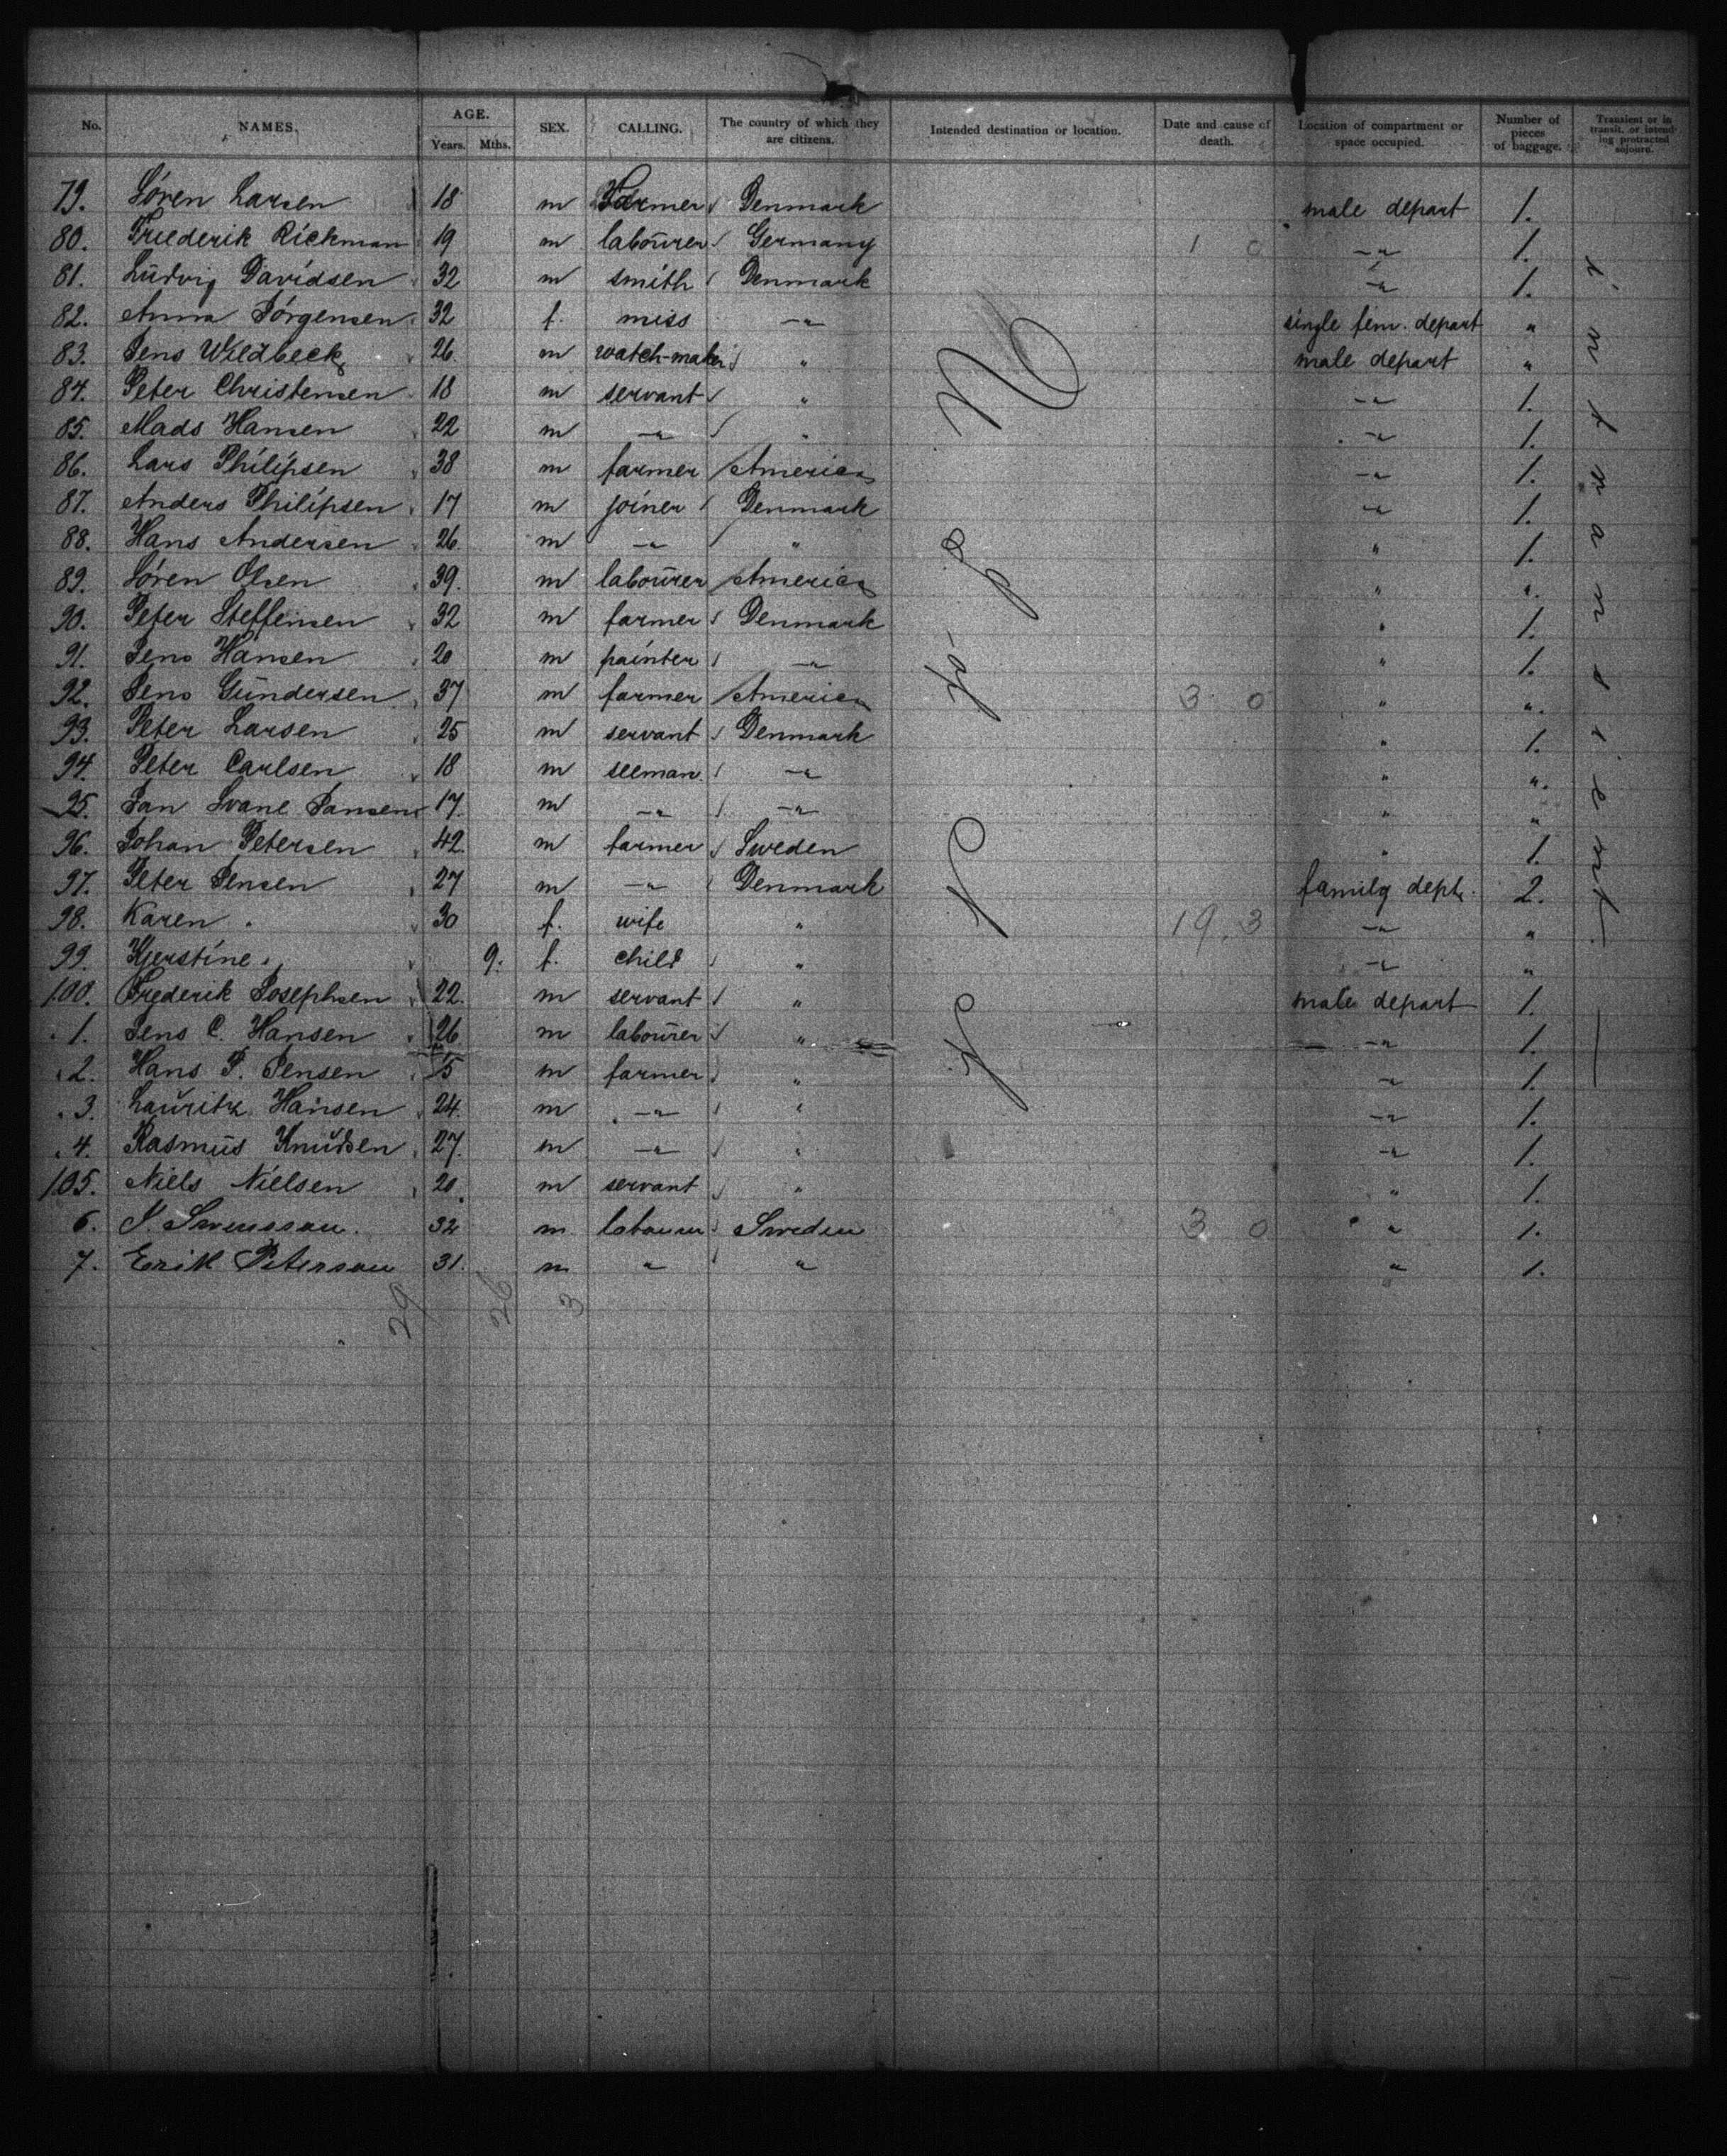 No. NAMES. AGE. SEX. CALLING. The country of which they are citizens. Intended destination or location. Date and cause of death. Location of compartment or space occupied. Number of pieces of baggage. Transient or in transit, or intending protracted sojourn.
Years. Mths.
79. Sören Larsen 18 m Farmer Denmark male depart 1.
80. Friederik Rickman 19 m laboürer Germany 1 0 -"- 1.
81. Lüdvig Davidsen 32 m smith Denmark -"- 1.
82. Anna Jörgensen 32 f. miss -"- single fem. depart "
83. Jens Wildbeck 26 m watch-maker " male depart "
84. Peter Christensen 18 m servant " -"- 1.
85. Mads Hansen 22 m -"- " -"- 1.
86. Lars Philipsen 38 m farmer America -"- 1.
87. Anders Philipsen 17 m joiner Denmark -"- 1.
88. Hans Andersen 26 m -"- " " 1.
89. Sören Olsen 39. m laboürer America " ".
90. Peter Steffensen 32 m farmer Denmark " 1.
91. Jens Hansen 20 m painter -"- " 1.
92. Jens Gündersen 37 m farmer America 3 0 " ".
93. Peter Larsen 25 m servant Denmark " 1.
94. Peter Carlsen 18 m seeman. -"- " ".
95. Jan Svane Jansen 17. m -"- -"- " "
96. Johan Petersen 42. m farmer Sweden " 1.
97. Peter Jensen 27 m -"- Denmark family dept. 2.
98. Karen " 30 f. wife " 19. 3 -"- "
99. Kjerstine " 9. f. child " -"- "
100. Frederik Josephsen 22. m servant " male depart 1.
" 1. Jens C. Hansen 26 m laboürer " -"- 1.
" 2. Hans P. Jensen 15 m farmer " -"- 1.
" 3. Laüritz Hansen 24. m -"- " -"- 1.
" 4. Rasmüs Knüdsen 27. m -"- " -"- 1.
105. Niels Nielsen 20. m servant " " 1.
6. Swensson. 32 m. labourer Sweden 3 0 " 1.
7. Erik Peterson 31. m " " " 1.
29 26 3
New-York
in transient.